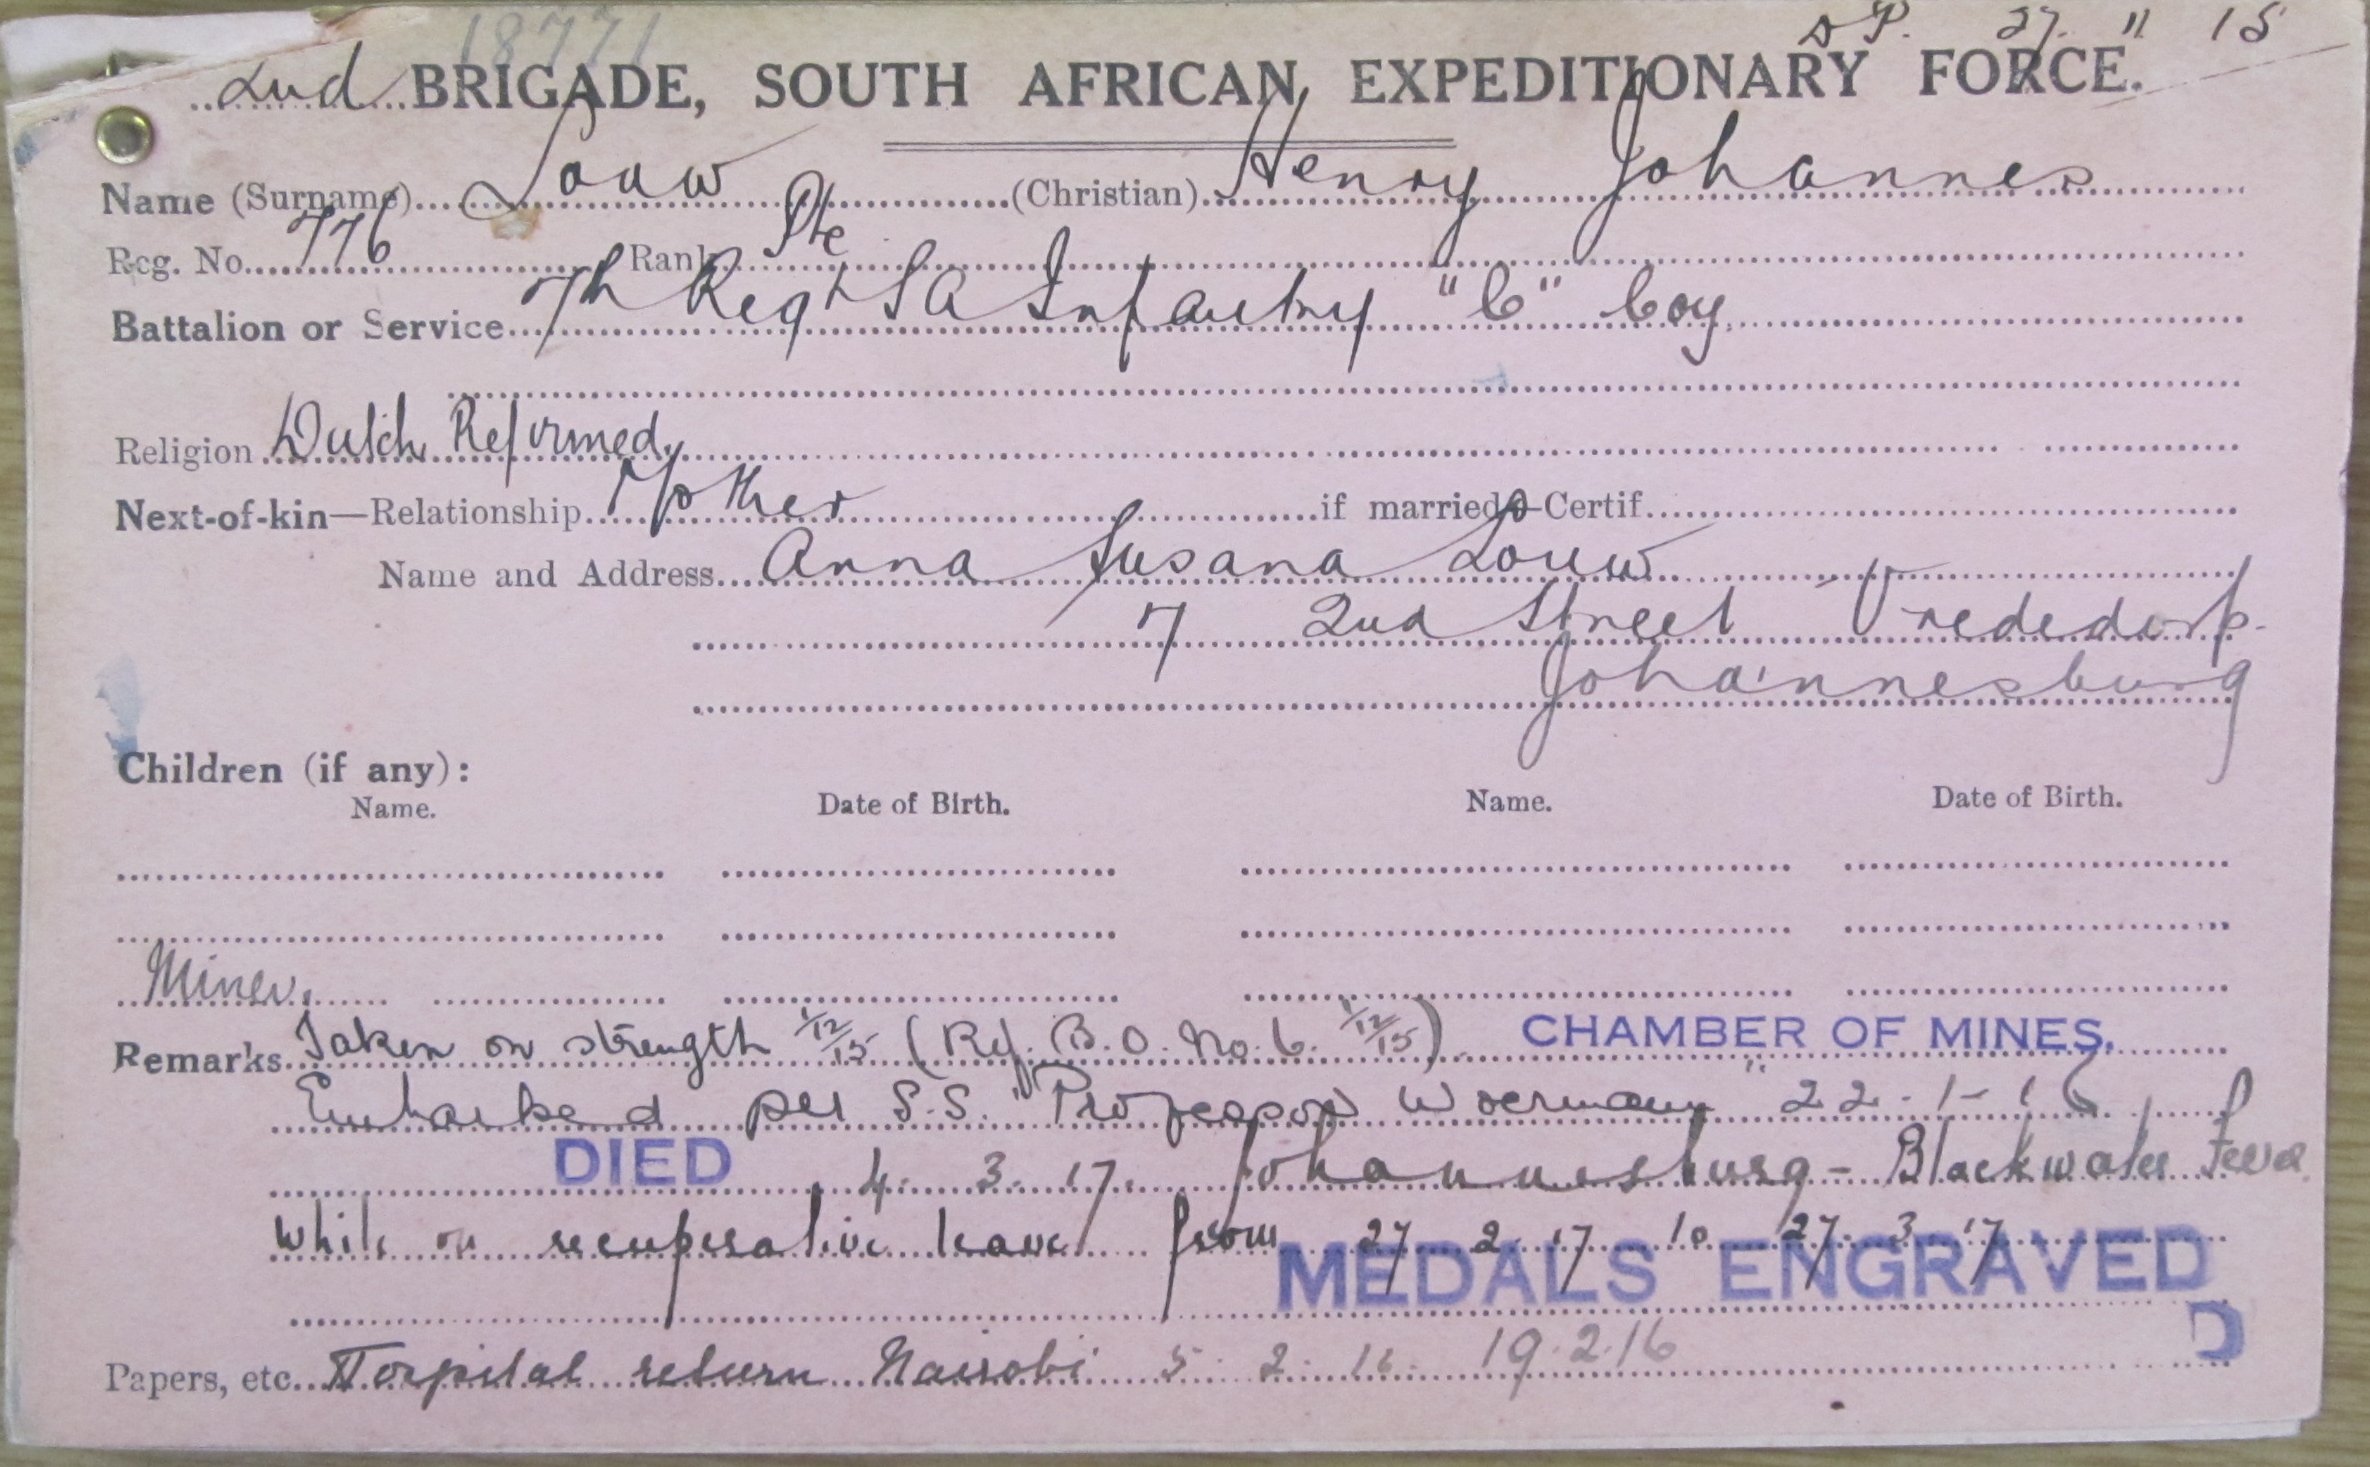 18771
D P. 27. 11 15
2nd BRIGADE, SOUTH AFRICAN EXPEDITIONARY FORCE.
Name (Surname) Louw (Christian) Henry Johannes
Reg. No. 776 Rank Pte
Battalion or Service 7th Regt S A Infantry "C" Coy.
Religion Dutch Reformed.
Next-of-kin—Relationship Mother if married—Certif.
Name and Address Anna Susana Louw
7 2nd Street Vrededorp
Johannesburg
Children (if any):
Name. Date of Birth. Name. Date of Birth.
Miner.
Remarks Taken on strength 1/12/15 (Ref. B.O. No. 6. 1/12/15) CHAMBER OF MINES.
Embarked per S.S. "Professor Woermann" 22-1-16
DIED 4. 3. 17. Johannesburg - Blackwater Fever
while on recuperative leave from 27 2 17 to 27 3 17
MEDALS ENGRAVED
D
Papers, etc. Hospital return Nairobi 5 2 16 19.2.16